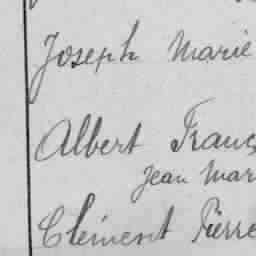 Joseph Marie
Albert Franç
Jean Mar
Clément Pierre